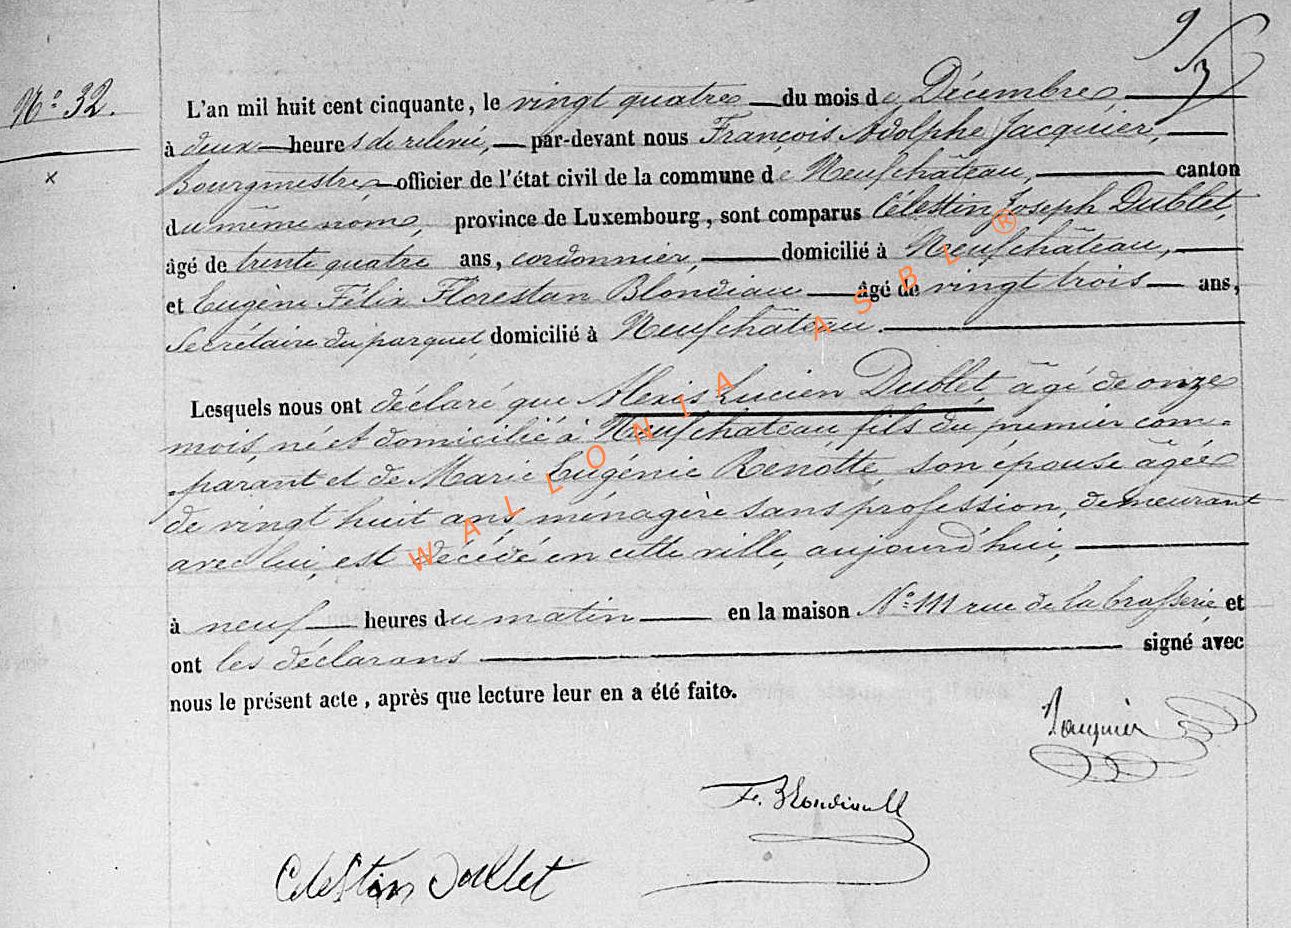 9
N° 32.
L'an mil huit cent cinquante, le vingt quatre du mois de Décembre,
à deux heures de relevée, par-devant nous François Adolphe Jacquier,
Bourgmestre officier de l'état civil de la commune de Neufchâteau, canton
du même nom, province de Luxembourg, sont comparus Célestin Joseph Dublet,
âgé de trente quatre ans, cordonnier, domicilié à Neufchâteau,
et Eugène Félix Florestan Blondiau âgé de vingt trois ans,
Secrétaire du parquet domicilié à Neufchâteau.
Lesquels nous ont déclaré que Alexis Lucien Dublet, âgé de onze
mois, né et domicilié à Neufchateau, fils du premier com=
parant et de Marie Eugénie Renotte, son épouse âgée
de vingt huit ans, ménagère sans profession, demeurant
avec lui, est décédé en cette ville, aujourd'hui,
à neuf heures du matin en la maison N° 111 rue de la brasserie, et
ont les déclarans signé avec
nous le présent acte, après que lecture leur en a été faite.
Jacquier
F. Blondiau
Célestin Dublet
WALLONIA ASBL ®